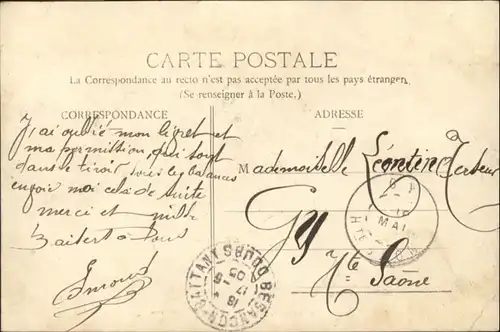 CARTE POSTALE
La Correspondance au recto n'est pas acceptée par tous les pays étrangers
(Se renseigner à la Poste.)
CORRESPONDANCE
ADRESSE
J'ai oublié mon livret et
ma permission, qui sont
dans le tiroir sous les balances
envoie moi cela de suite
merci et mille
Baisers à tous
Mademoiselle Léontine
Gy
Hte Saône
BESANCON-BATTANT DOUBS
MAI